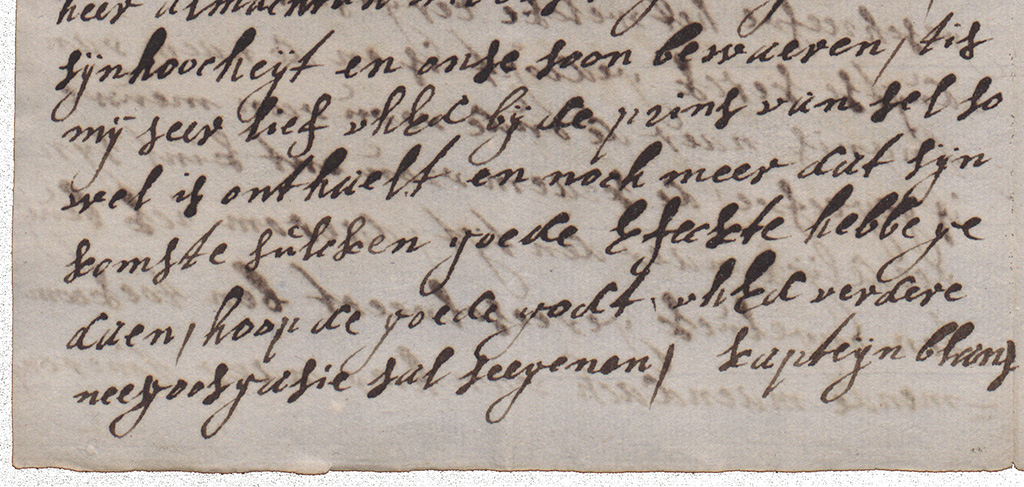 heer almachtich
sÿnhoocheÿt en onse soon bewaeren, tis
mÿ seer lief uhEd bÿ de prins van sel so
wel is onthaelt en noch meer dat sÿn
komste sulcken goede Efeckte hebbe ge
daen, hoop de goede godt uhEd verdere
neegoosyasie sal seegenen, kapteÿn blans